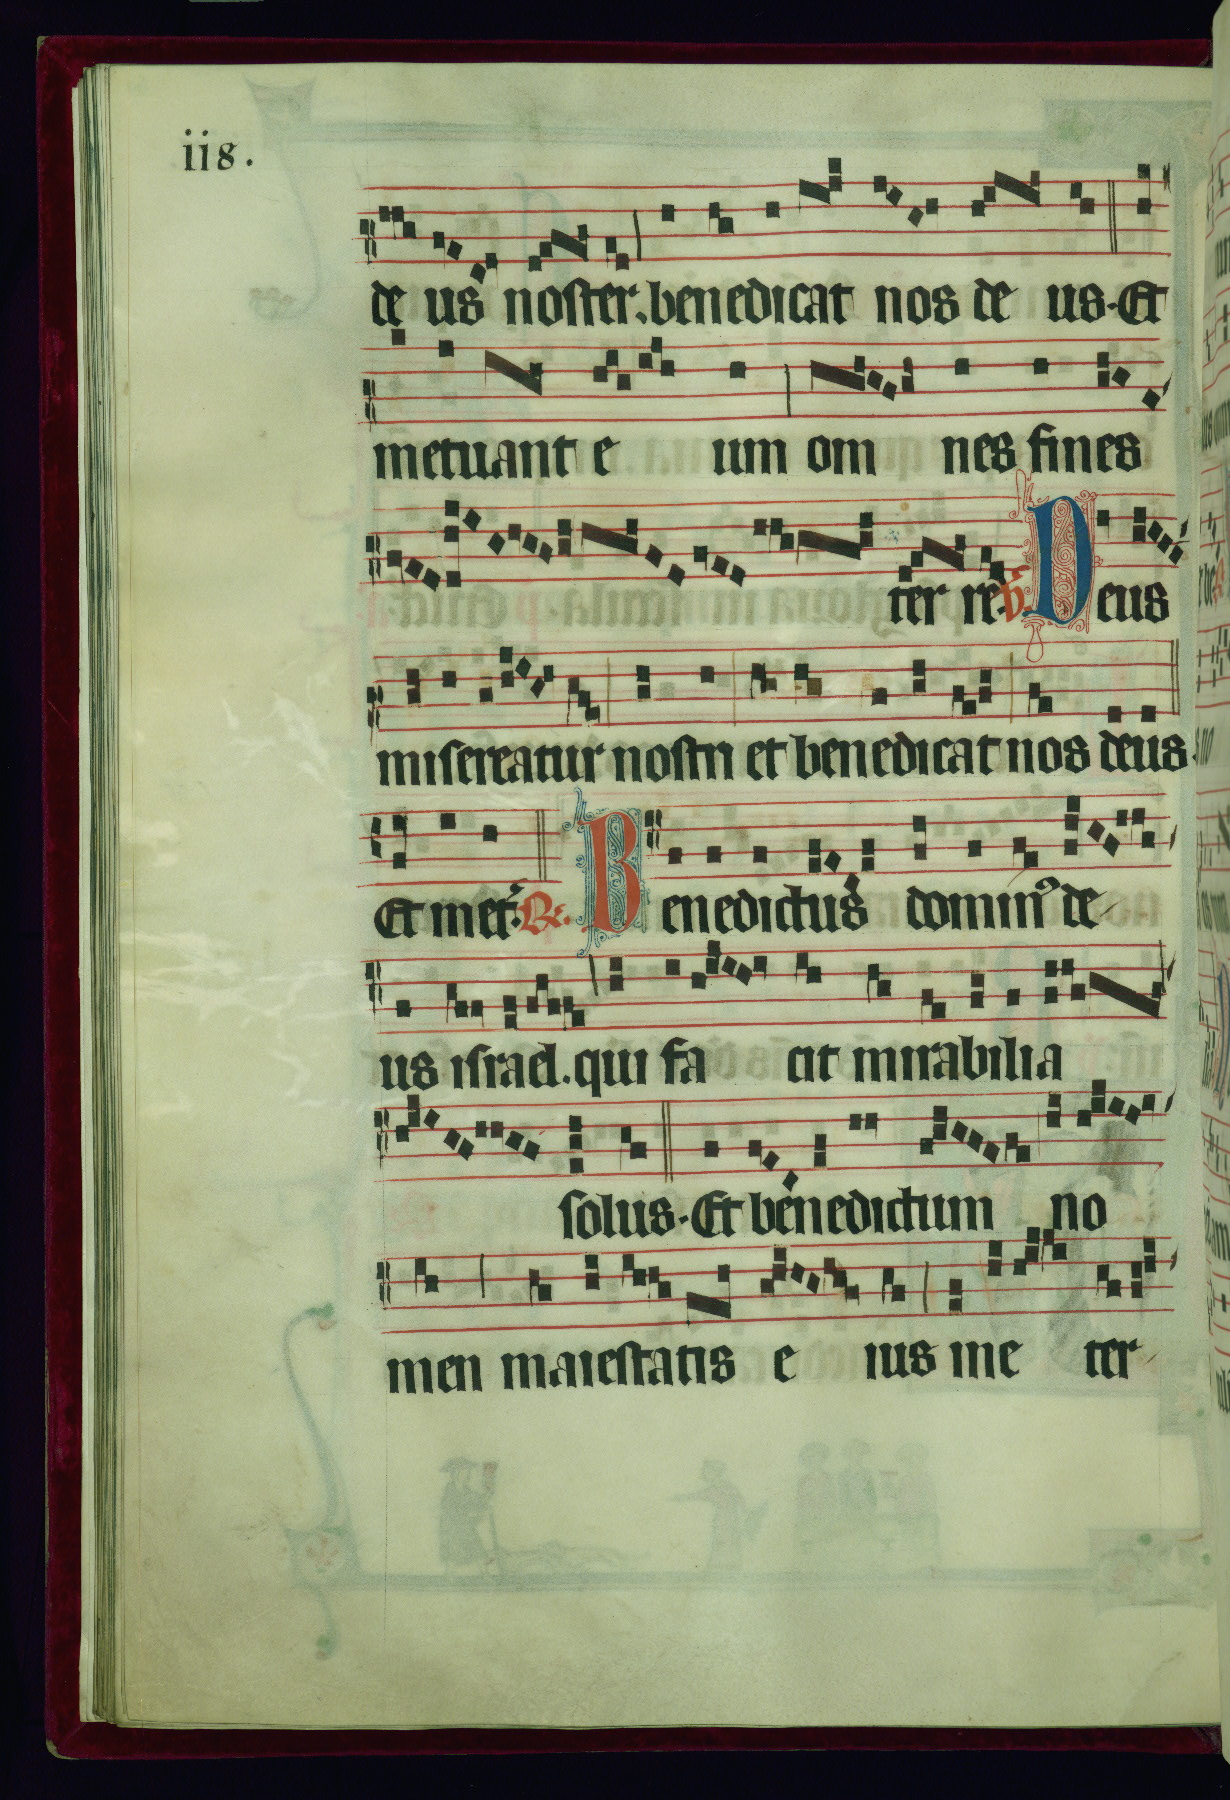 ii8.
de us noster. benedicat nos de us. Et
metuant e um om nes fines
ter re. v̄. Deus
misereatur nostri et benedicat nos deus.
Et met̄. R. Benedictus dominꝰ de
us israel. qui fa cit mirabilia
solus. Et benedictum no
men maiestatis e ius in e ter